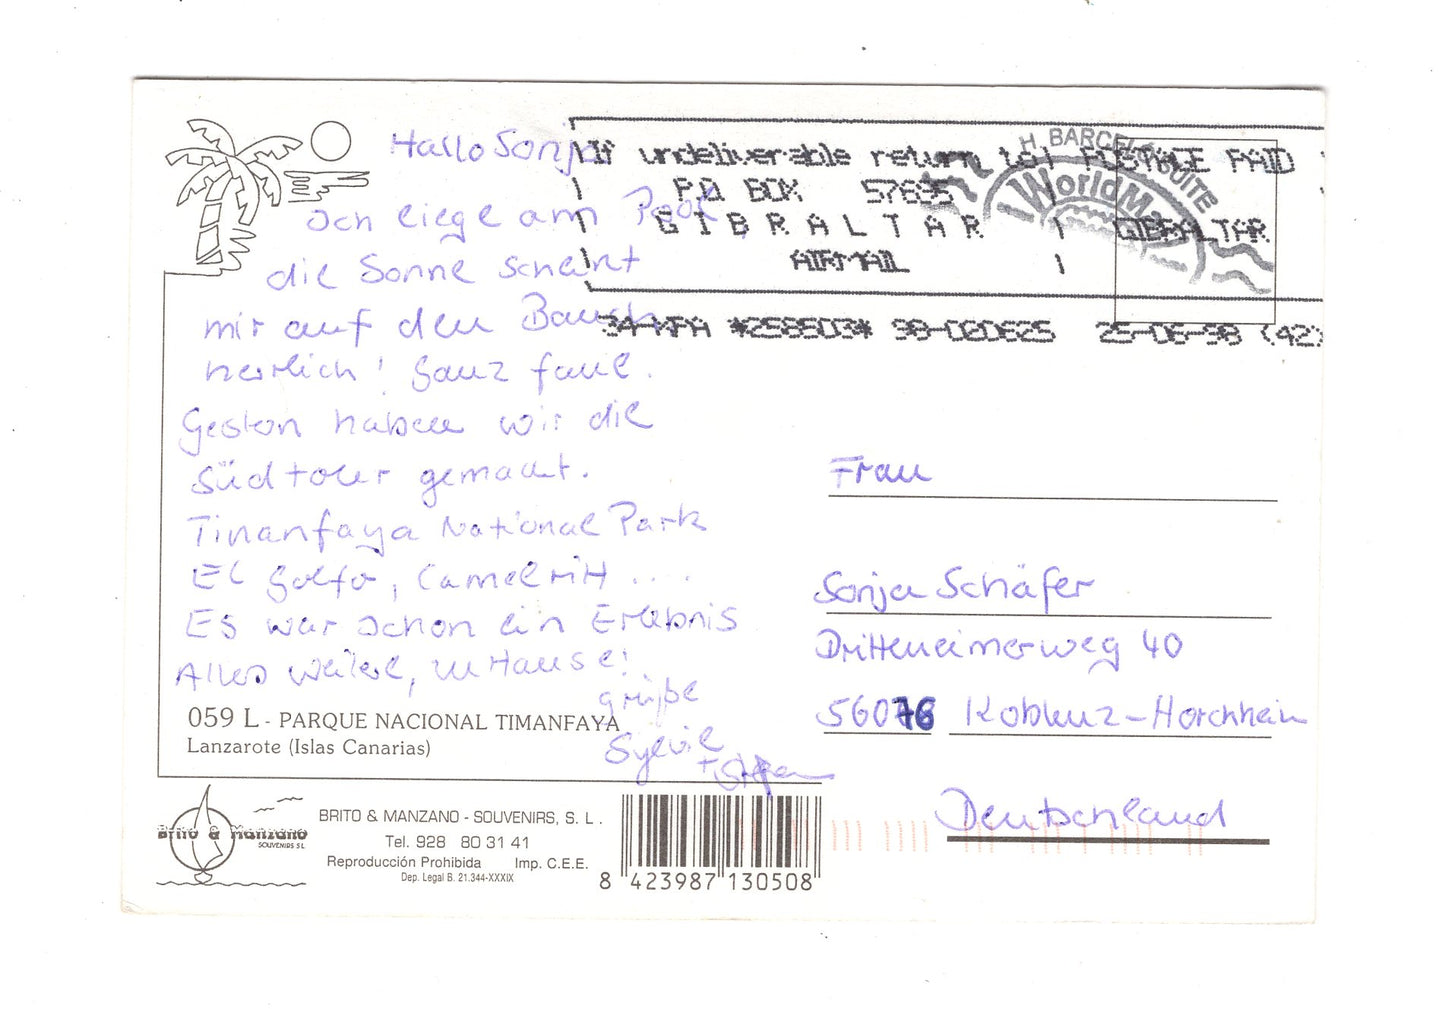 Hallo Sonja
Ich liege am Pool,
die Sonne scheint
mir auf den Bauch
herrlich! Ganz faul.
Gestern haben wir die
Südtour gemacht.
Tinanfaya National Park
El Golfo, Camelritt ....
Es war schon ein Erlebnis
Alles weitere, zu Hause!
Grüße
Sylvie
+ Stefan
059 L - PARQUE NACIONAL TIMANFAYA
Lanzarote (Islas Canarias)
Brito & Manzano
SOUVENIRS S L
BRITO & MANZANO - SOUVENIRS, S. L.
Tel. 928 80 31 41
Reproducción Prohibida Imp. C.E.E.
Dep. Legal B. 21.344-XXXIX
8 423987 130508
If undeliverable return to POSTAGE PAID
PO BOX 57685
GIBRALTAR GIBRALTAR
AIRMAIL
34-KFA *258503* 98-000625 25-06-98 (42)
H. BARCELO SUITE
WorldM
Frau
Sonja Schäfer
Dritteneimerweg 40
56076 Koblenz-Horchheim
Deutschland